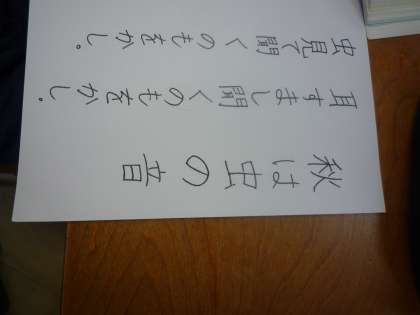 秋は虫の音
耳すまし聞くのもをかし。
虫見て聞くのもをかし。